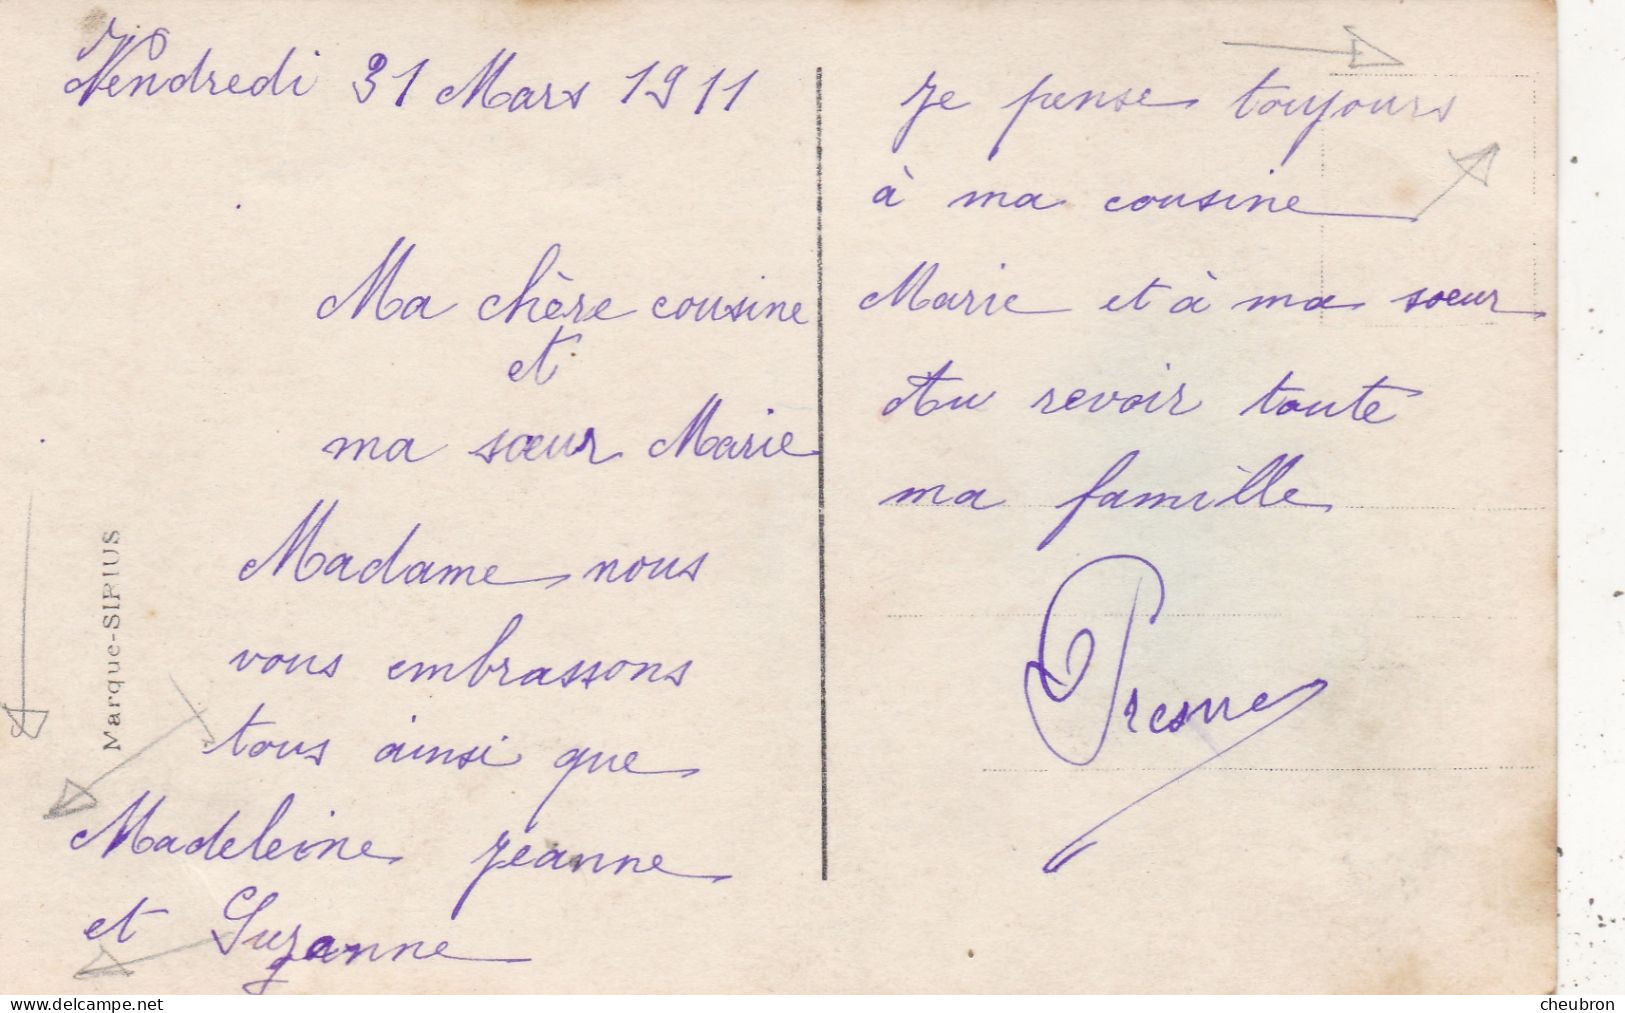 Vendredi 31 Mars 1911
Ma chère cousine
et
ma sœur Marie
Madame nous
vous embrassons
tous ainsi que
Madeleine Jeanne
et Suzanne
Marque-SIRIUS
Je pense toujours
à ma cousine
Marie et à ma soeur
Au revoir toute
ma famille
cheubron